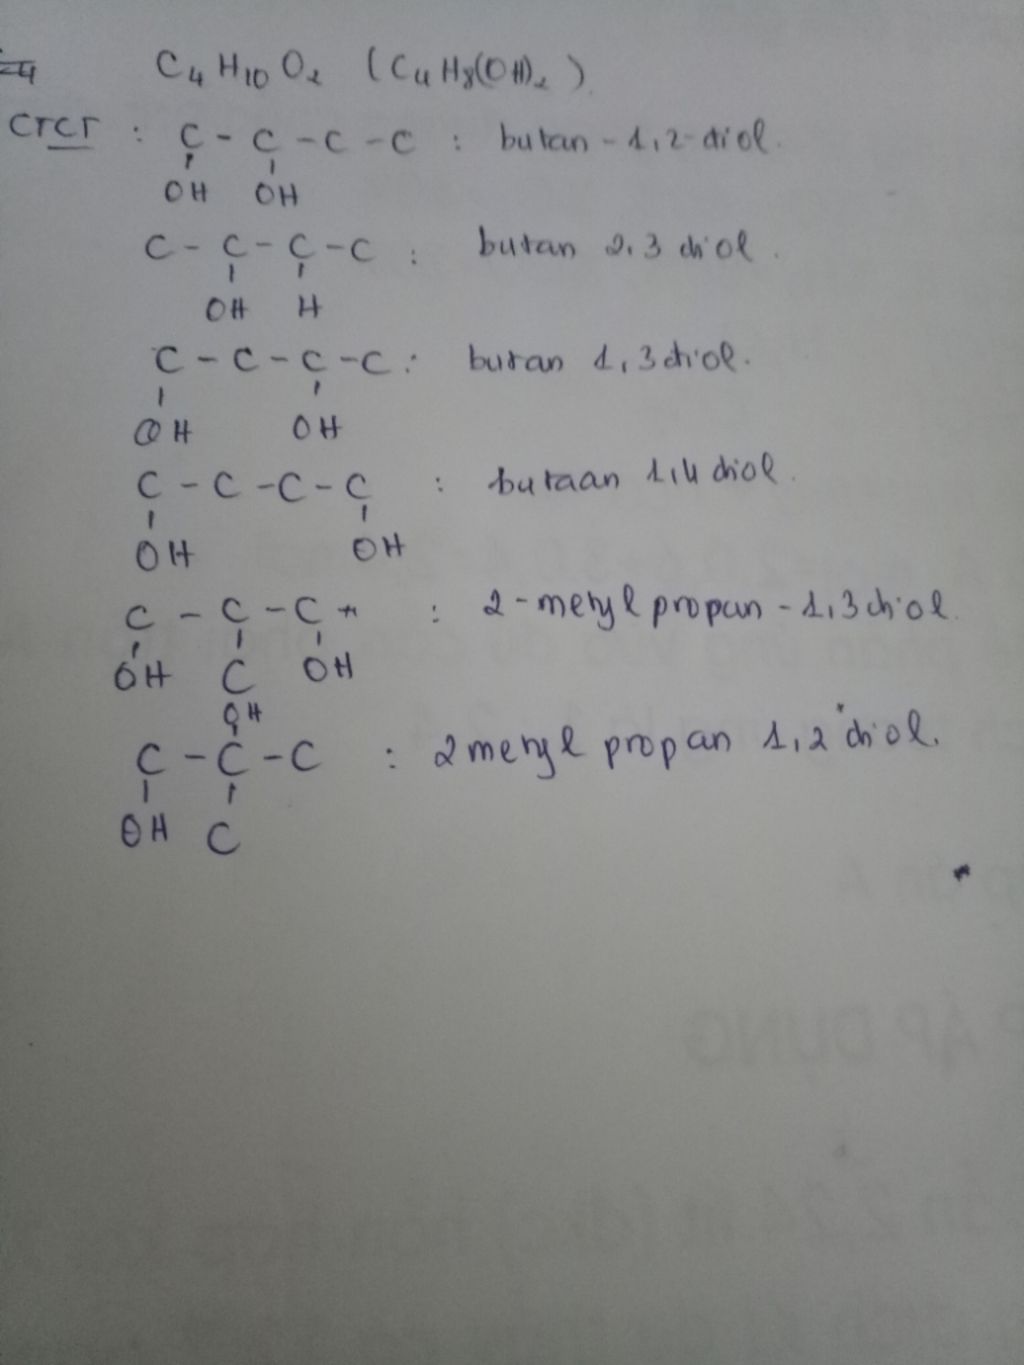 C4H10O2 (C4H8(OH)2)
CTCT : C - C - C - C : butan - 1,2-diol.
OH OH
C - C - C - C : butan 2,3 diol.
OH H
C - C - C - C : butan 1,3 diol.
OH OH
C - C - C - C : butaan 1,4 diol.
OH OH
C - C - C : 2-metyl propan - 1,3 diol.
OH C OH
OH
C - C - C : 2 metyl propan 1,2 diol.
OH C
ÁP DỤNG